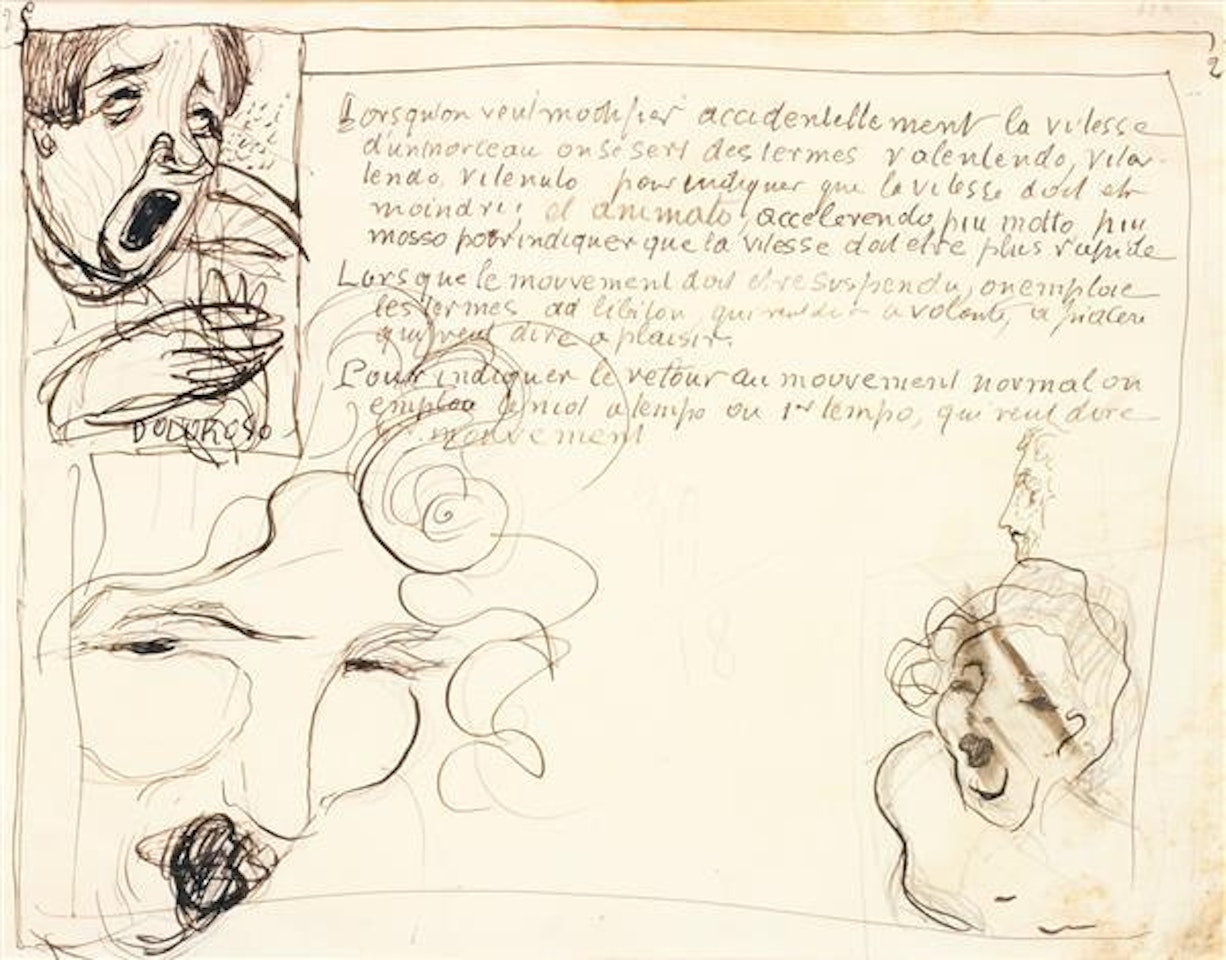 Lorsqu'on veut modifier accidentellement la vitesse
d'un morceau on se sert des termes ralentendo, ritar-
tendo, ritenuto pour indiquer que la vitesse doit etr
moindre; et animato, accelerendo, piu motto, piu
mosso pour indiquer que la vitesse doit etre plus rapide
Lorsque le mouvement doit etre suspendu, on emploie
les termes ad libiton, qui veut dir a volonté, a piacere
qui veut dire a plaisir.
Pour indiquer le retour au mouvement normal on
emploa le mot a tempo ou 1er tempo, qui veut dire
mouvement
DOLOROSO
2